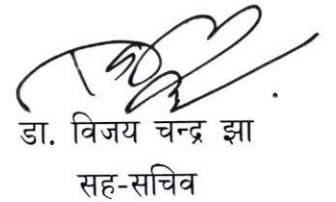 डा. विजय चन्द्र झा
सह-सचिव